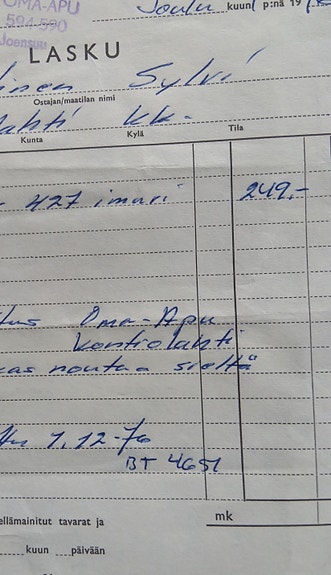 OMA-APU
594-590
Joensuu
Joulu kuun 1 p:nä 19
LASKU
nen Sylvi
Ostajan/maatilan nimi
lahti kk.
Kunta Kylä Tila
427 imuri 249,-
tus Oma-Apu
Kontiolahti
as noutaa sieltä
1.12-76
BT 4651
mk
ellämainitut tavarat ja
kuun päivään